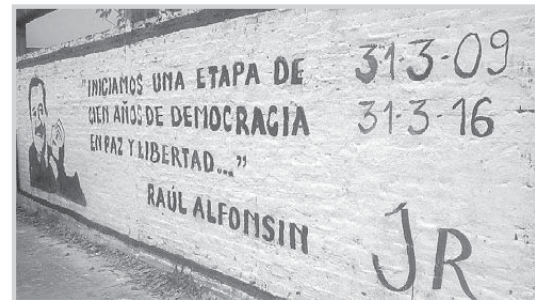 "INICIAMOS UNA ETAPA DE
CIEN AÑOS DE DEMOCRACIA
EN PAZ Y LIBERTAD..."
RAÚL ALFONSIN
31-3-09
31-3-16
JR